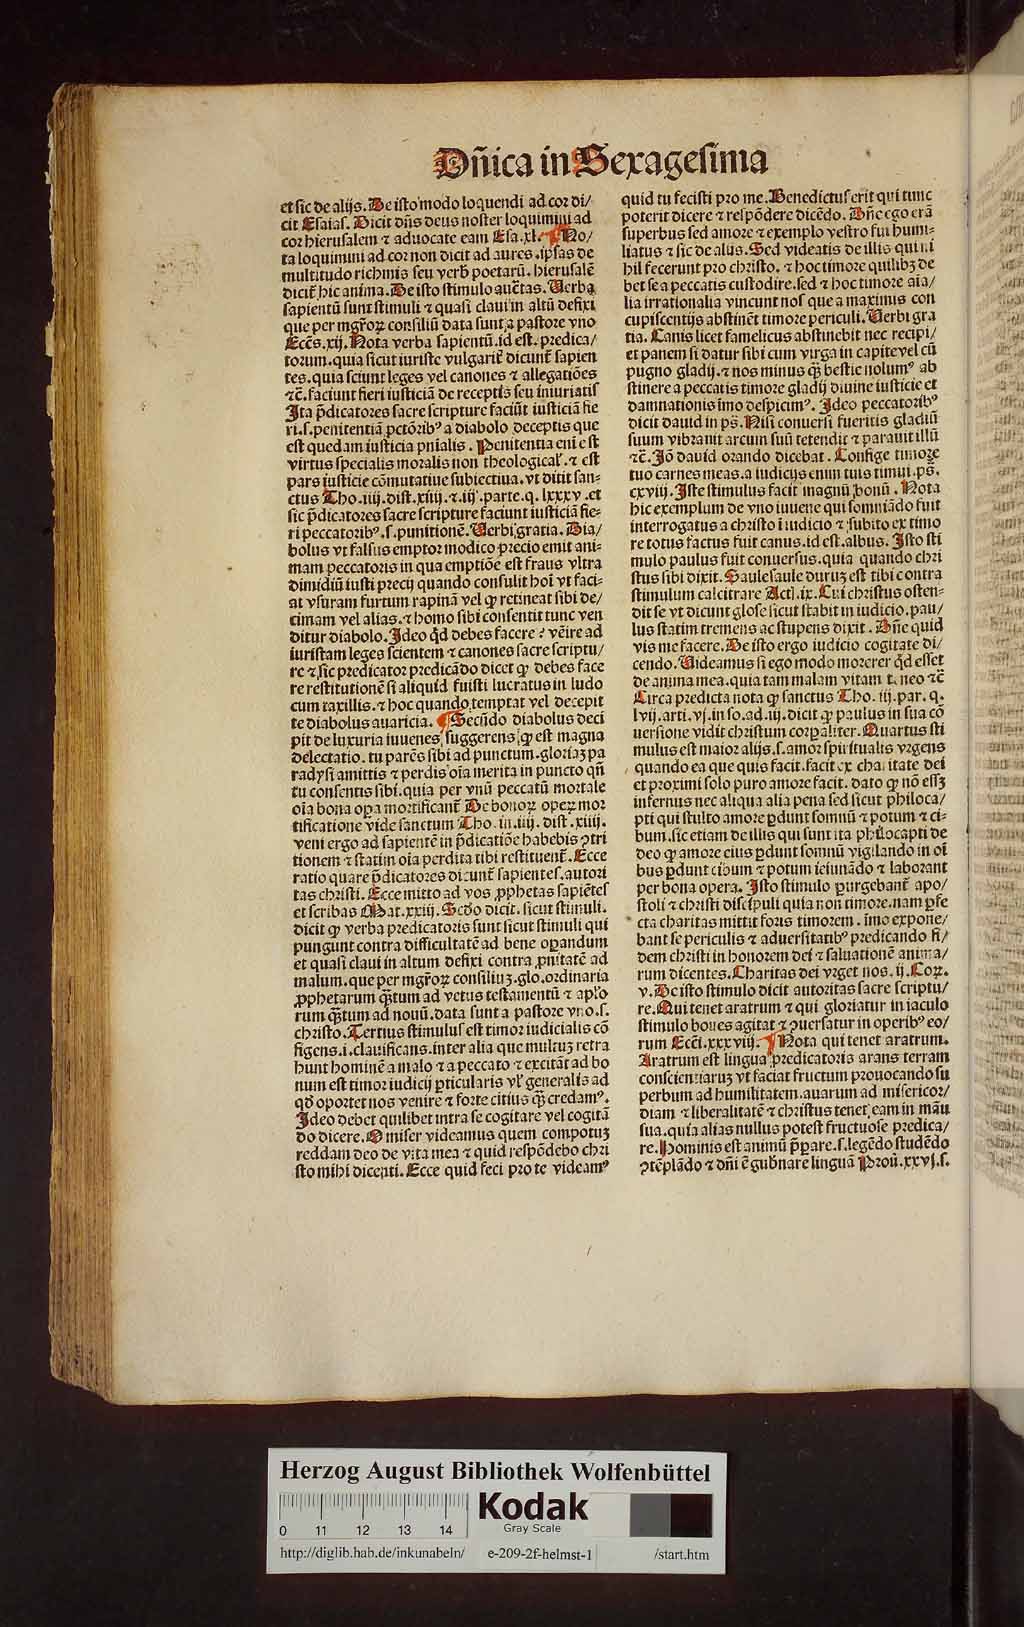 Dñica in Sexagesima
et sic de alijs. De isto modo loquendi ad cor di/
cit Esaias. Dicit dñs deus noster loquimini ad
cor hierusalem ⁊ aduocate eam Esa .xl. ¶ No/
ta loquimini ad cor non dicit ad aures .ipsas de
multitudo richmis seu verb̄ poetarū. hierusalē
dicit̄ hic anima. De isto stimulo auc̄tas. Uerba
sapientū sunt stimuli ⁊ quasi claui in altū defixi
que per mgr̄oꝝ consiliū data sunt a pastore vno
Ecc̄s. xij. Nota verba sapientū .id est. predica/
torum. quia sicut iuriste vulgarit̄ dicunt̄ sapien
tes. quia sciunt leges vel canones ⁊ allegatiões
⁊c̄. faciunt fieri iusticiā de receptis seu iniuriatis
Ita p̄dicatores sacre scripture faciūt iusticiā fie
ri .s. penitentiā pctōribꝰ a diabolo deceptis que
est quedam iusticia pnialis . Penitentia eni est
virtus specialis moralis non theological̄. ⁊ est
pars iusticie cōmutatiue subiectiua. vt dicit san-
ctus Tho. iiij. dist. xiiij. ⁊ .iij. parte. q. lxxxv. et
sic p̄dicatores sacre scripture faciunt iusticiā fie-
ri peccatoribꝰ .s. punitionē. Uerbi gratia. Dia/
bolus vt falsus emptor modico precio emit ani-
mam peccatoris in qua emptiõe est fraus vltra
dimidiū iusti precij quando consulit hoī vt faci-
at vsuram furtum rapinā vel ꝙ retineat sibi de/
cimam vel alias. ⁊ homo sibi consentit tunc ven
ditur diabolo. Ideo qd̄ debes facere? vēire ad
iuristam leges scientem ⁊ canones sacre scriptu/
re ⁊ sic predicator predicādo dicet ꝙ debes face
re restitutionē si aliquid fuisti lucratus in ludo
cum taxillis. ⁊ hoc quando temptat vel decepit
te diabolus auaricia. ¶ Secūdo diabolus deci
pit de luxuria iuuenes suggerens ꝙ est magna
delectatio. tu parēs sibi ad punctum. gloriaꝫ pa
radysi amittis ⁊ perdis oīa merita in puncto qn̄
tu consentis sibi. quia per vnū peccatū mortale
oīa bona oꝑa mortificant̄ De bonoꝝ operꝫ mor
tificatione vide sanctum Tho. in .iiij. dist. xiiij.
veni ergo ad sapientē in p̄dicatiõe habebis ꝯtri
tionem ⁊ statim oīa perdita tibi restituent̄. Ecce
ratio quare p̄dicatores dicunt̄ sapientes. autori
tas christi. Ecce mitto ad vos ꝓphetas sapiētes
et scribas Mat. xxiij. Scd̄o dicit. sicut stimuli.
dicit ꝙ verba predicatoris sunt sicut stimuli qui
pungunt contra difficultatē ad bene oꝑandum
et quasi claui in altum defixi contra ꝓnitatē ad
malum. que per mgr̄oꝝ consiliuꝫ. glo. ordinaria
ꝓphetarum qꝫ̄tum ad vetus testamentū ⁊ aplo
rum qꝫ̄tum ad nouū. data sunt a pastore vno .s.
christo. Tertius stimulus est timor iudicialis cō
figens. i. clauificans. inter alia que multuꝫ retra
hunt hominē a malo ⁊ a peccato ⁊ excitāt ad bo
num est timor iudicij ꝑticularis vl̓ generalis ad
qd̄ oportet nos venire ⁊ forte citius qꝫ̄ credamꝰ.
Ideo debet quilibet intra se cogitare vel cogitā
do dicere. O miser videamus quem compotuꝫ
reddam deo de vita mea ⁊ quid respõdebo chri
sto mihi dicenti. Ecce quid feci pro te videamꝰ
quid tu fecisti pro me. Benedictus erit qui tunc
poterit dicere ⁊ respōdere dicēdo. Dn̄e ego erā
superbus sed amore ⁊ exemplo vestro fui humi-
liatus ⁊ sic de alijs. Sed videatis de illis qui ni
hil fecerunt pro christo. ⁊ hoc timore quilibꝫ de
bet se a peccatis custodire. sed ⁊ hoc timore aīa/
lia irrationalia vincunt nos que a maximis con
cupiscentijs abstinēt timore periculi. Uerbi gra
tia. Canis licet famelicus abstinebit nec recipi/
et panem si datur sibi cum virga in capite vel cū
pugno gladij. ⁊ nos minus qꝫ̄ bestie nolumꝰ ab
stinere a peccatis timore gladij diuine iusticie et
damnationis īmo despicimꝰ. Ideo peccatoribꝰ
dicit dauid in ps̄. Nisi conuersi fueritis gladiū
suum vibrauit arcum suū tetendit ⁊ parauit illū
⁊c̄. Iō dauid orando dicebat. Confige timore
tuo carnes meas. a iudicijs enim tuis timui. ps̄.
cxviij. Iste stimulus facit magnū bonū. Nota
hic exemplum de vno iuuene qui somniādo fuit
interrogatus a christo ī iudicio ⁊ subito ex timo
re totus factus fuit canus. id est. albus. Isto sti
mulo paulus fuit conuersus. quia quando chri
stus sibi dixit. Saule saule duruꝫ est tibi contra
stimulum calcitrare Act̄. ix. Cui christus osten-
dit se vt dicunt glose sicut stabit in iudicio. pau/
lus statim tremens ac stupens dixit. Dn̄e quid
vis me facere. De isto ergo iudicio cogitate di/
cendo. Uideamus si ego modo morerer qd̄ esset
de anima mea. quia tam malam vitam teneo ⁊c̄
Circa predicta nota ꝙ sanctus Tho. iij. par. q.
lvij. arti. vj. in so. ad .iij. dicit ꝙ paulus in sua cō
uersione vidit christum corꝑaliter. Quartus sti
mulus est maior alijs .s. amor spiritualis vrgens
quando ea que quis facit. facit ex charitate dei
et proximi solo puro amore facit. dato ꝙ nō essꝫ
infernus nec aliqua alia pena sed sicut philoca/
pti qui stulto amore ꝑdunt somnū ⁊ potum ⁊ ci-
bum. sic etiam de illis qui sunt ita philocapti de
deo ꝙ amore eius ꝑdunt somnū vigilando in oī
bus ꝑdunt cibum ⁊ potum ieiunādo ⁊ laborant
per bona opera. Isto stimulo ꝑurgebant̄ apo/
stoli ⁊ christi discipuli quia non timore. nam ꝑfe
cta charitas mittit foris timorem. īmo expone/
bant se periculis ⁊ aduersitatibꝰ predicando fi/
dem christi in honorem dei ⁊ saluationē anima/
rum dicentes. Charitas dei vrget nos. ij. Coꝝ.
v. De isto stimulo dicit autoritas sacre scriptu/
re. Qui tenet aratrum ⁊ qui gloriatur in iaculo
stimulo boues agitat ⁊ ꝯuersatur in operibꝰ eo/
rum Ecc̄i. xxxviij. ¶ Nota qui tenet aratrum.
Aratrum est lingua predicatoris arans terram
conscientiaruꝫ vt faciat fructum prouocando su
perbum ad humilitatem. auarum ad misericor/
diam ⁊ liberalitatē ⁊ christus tenet eam in māu
sua. quia alias nullus potest fructuose predica/
re. Hominis est animū p̄ꝑare .s. legēdo studēdo
ꝯtēplādo ⁊ dn̄i ē gub̄nare linguā Prou̅. xxvj. s.
Herzog August Bibliothek Wolfenbüttel
Kodak
Gray Scale
0 11 12 13 14
http://diglib.hab.de/inkunabeln/ e-209-2f-helmst-1 /start.htm